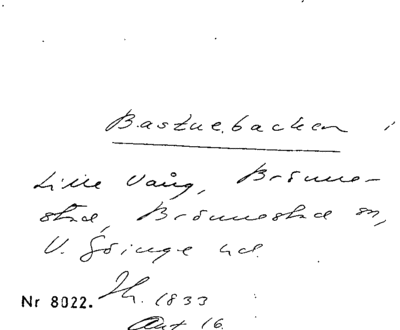 Bastuebacken i
Lille Vång, Brönne-
stad, Brönnestad sn,
V. Göinge hd.
Nr 8022. Th. 1833
Akt 16.